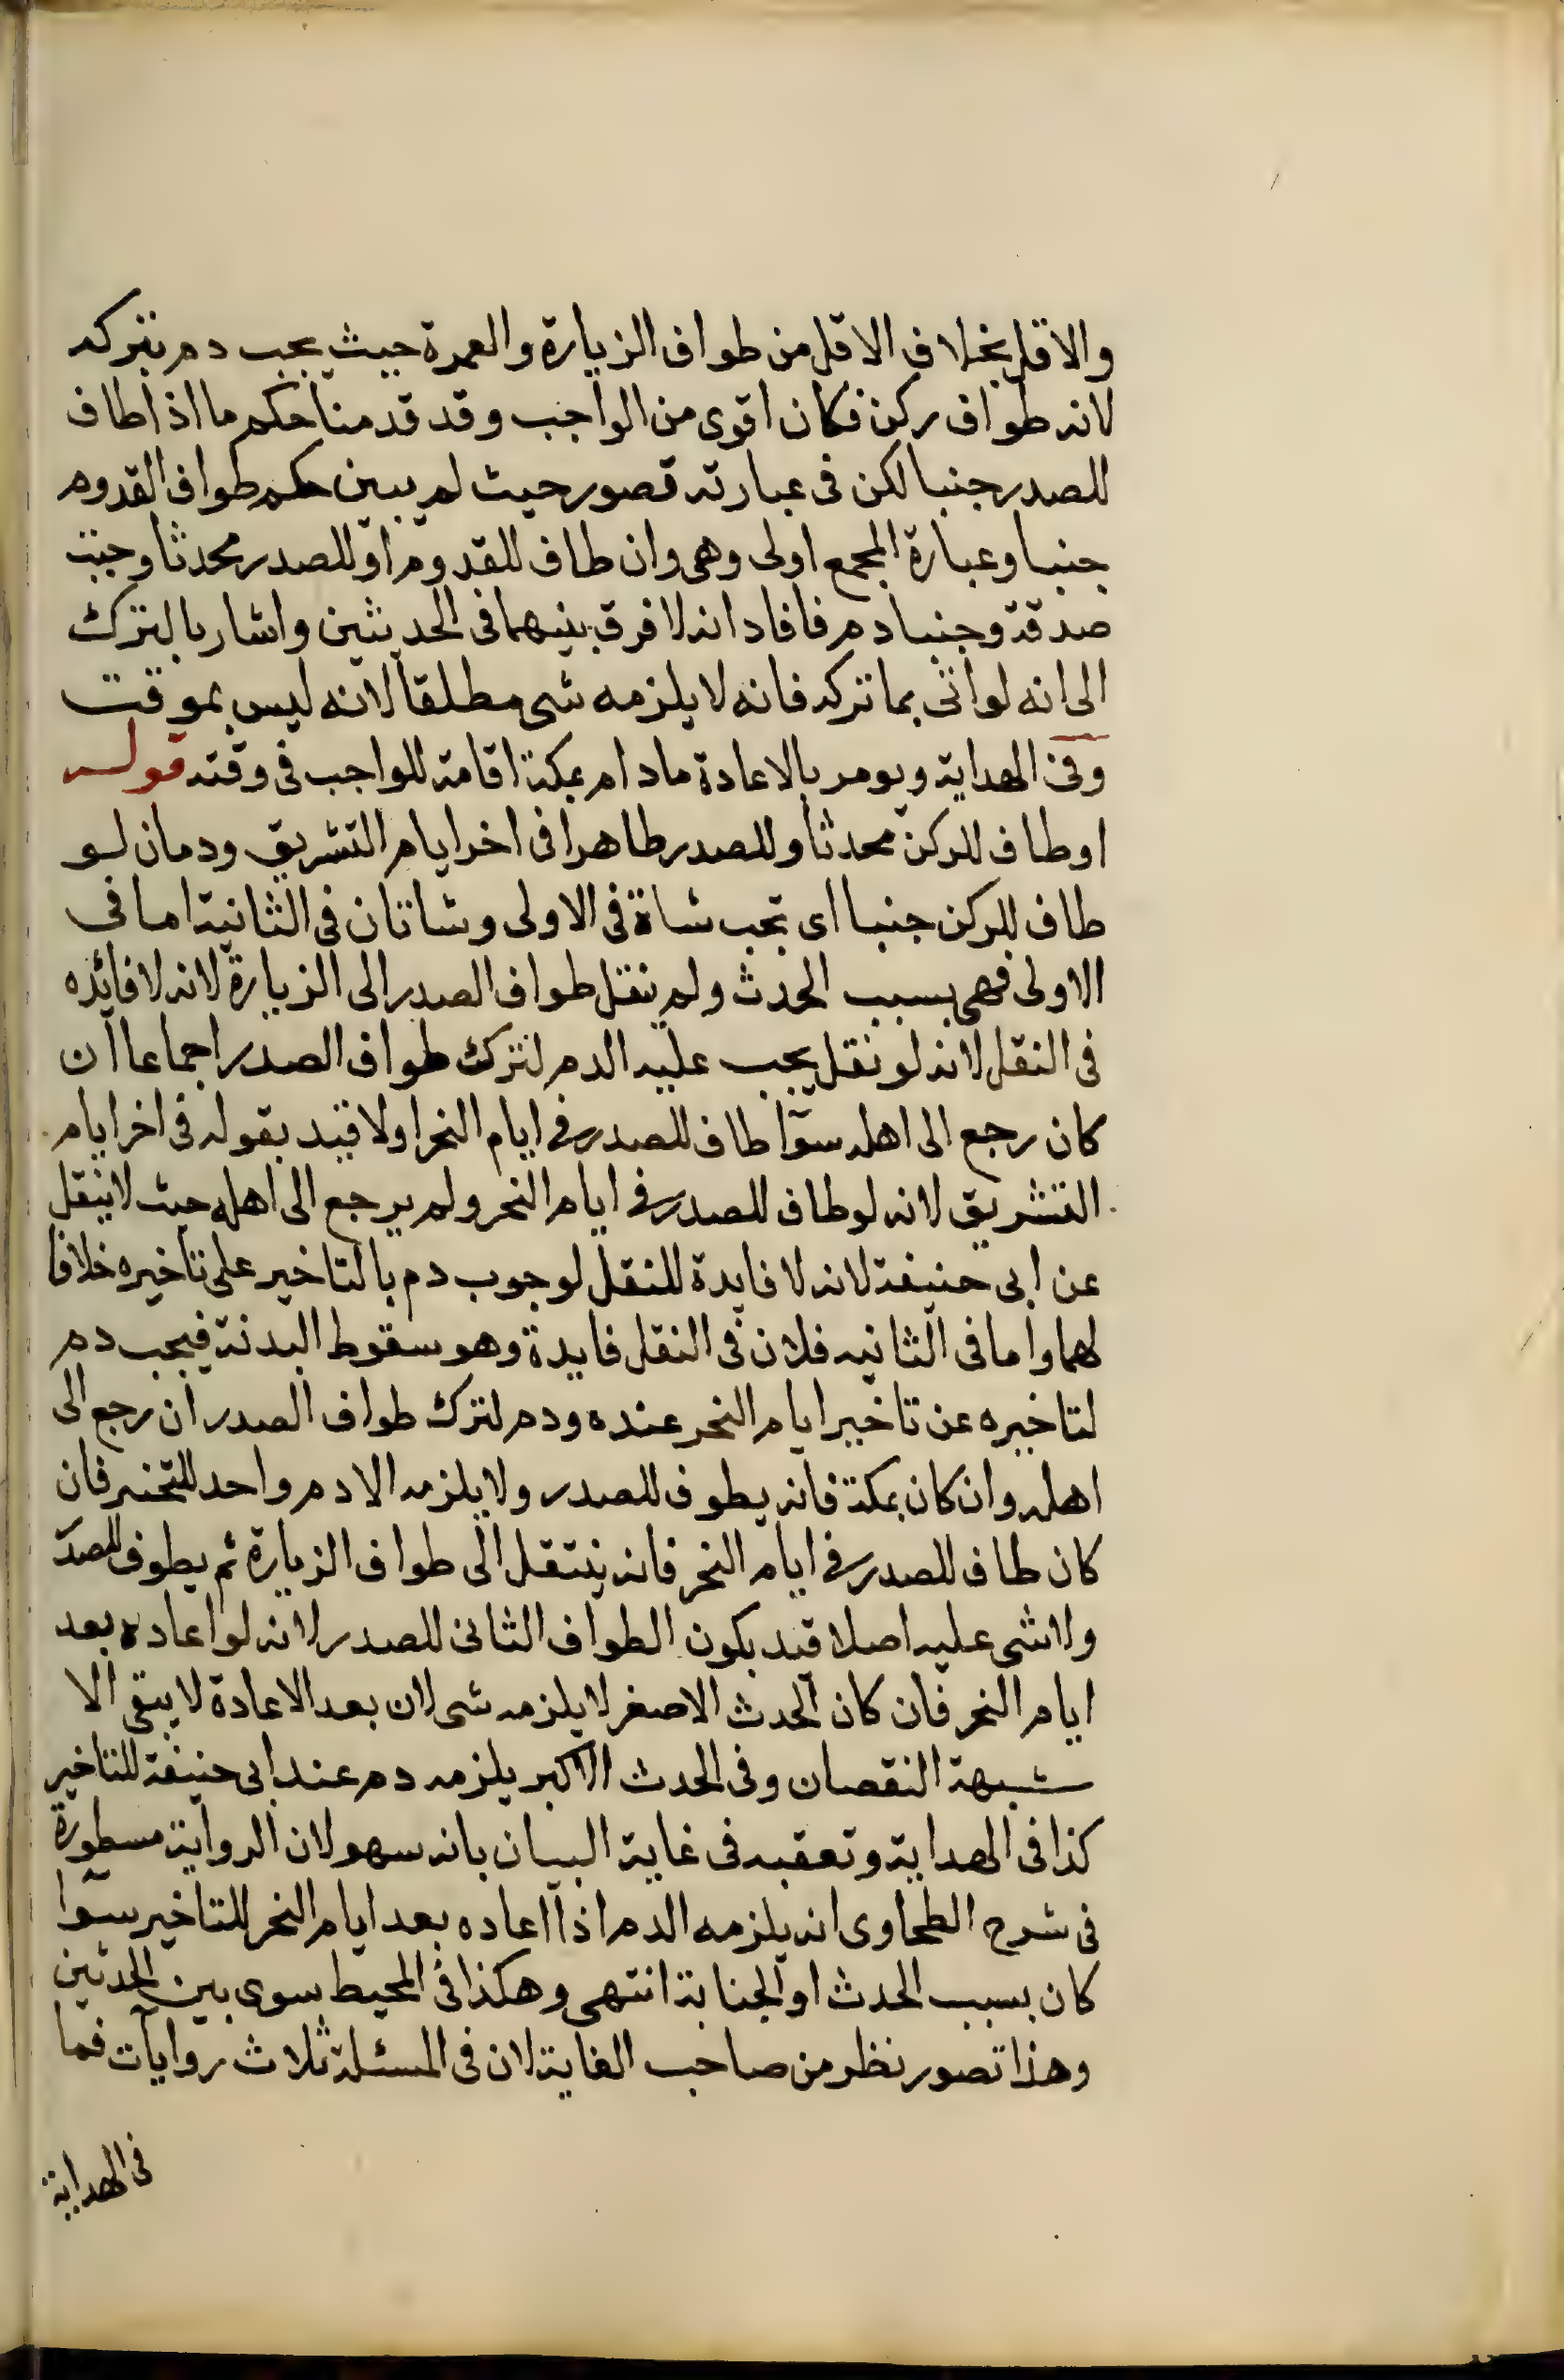 والاقل بخلاف الاقل من طواف الزيارة والعمرة حيث يجب دم بتركه
لانه طواف ركن فكان اقوى من الواجب وقد قدمنا حكم ما اذا طاف
للصدر جنبا لكن فى عبارته قصور حيث لم يبين حكم طواف القدوم
جنبا وعبارة المجمع اولى وهى وان طاف للقدوم او للصدر محدثا وجبت
صدقة وجنبا دم فافاد انه لا فرق بينهما فى الحدثين واشار بالترك
الى انه لو اتى بما تركه فانه لا يلزمه شى مطلقا لانه ليس بموقت
وفى الهداية ويومر بالاعادة مادام بمكة اقامة للواجب فى وقته قوله
او طاف للركن محدثا وللصدر طاهرا فى اخر ايام التشريق ودمان لو
طاف للركن جنبا اى تجب شاة فى الاولى وشاتان فى الثانية اما فى
الاولى فهى بسبب الحدث ولم ينقل طواف الصدر الى الزيارة لانه لا فائده
فى النقل لانه لو نقل يجب عليه الدم لترك طواف الصدر اجماعا ان
كان رجع الى اهله سوآ طاف للصدر فى ايام النحر اولا قيد بقوله فى اخر ايام
التشريق لانه لو طاف للصدر فى ايام النحر ولم يرجع الى اهله حيث لا ينقل
عن ابى حنيفة لانه لا فايدة للنقل لوجوب دم بالتاخير على تاخيره خلافا
لهما واما فى الثانيه فلان فى النقل فايدة وهو سقوط البدنة فيجب دم
لتاخيره عن تاخير ايام النحر عنده ودم لترك طواف الصدر ان رجع الى
اهله وان كان بمكة فانه يطوف للصدر ولا يلزمه الا دم واحد للتخير فان
كان طاف للصدر فى ايام النحر فانه ينتقل الى طواف الزيارة ثم يطوف للصدر
ولا شى عليه اصلا قيد بكون الطواف الثانى للصدر لانه لو اعاده بعد
ايام النحر فان كان الحدث الاصغر لا يلزمه شى لان بعد الاعادة لا يبقى الا
شبهة النقصان وفى الحدث الاكبر يلزمه دم عند ابى حنيفة للتاخير
كذا فى الهداية وتعقبه فى غاية البيان بانه سهو لان الرواية مسطورة
فى شرح الطحاوى انه يلزمه الدم اذا اعاده بعد ايام النحر للتاخير سوا
كان بسبب الحدث او الجنابة انتهى وهكذا فى المحيط سوى بين الحدثين
وهذا قصور نظر من صاحب الغاية لان فى المسئلة ثلاث روايات فما
فى الهداية